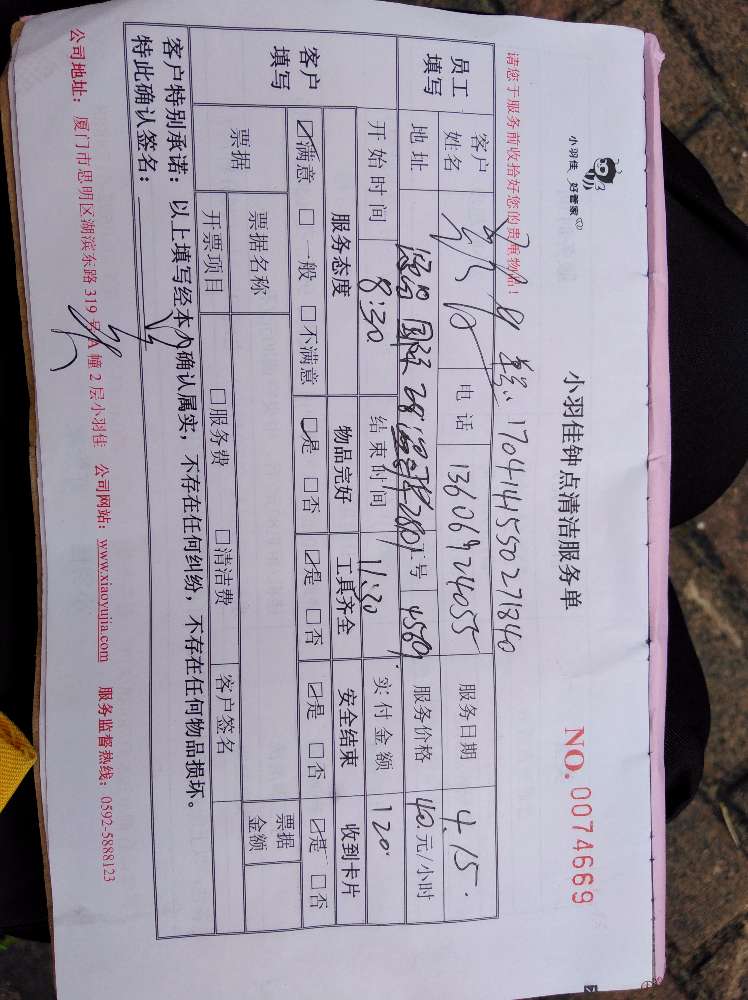 小羽佳 好管家
小羽佳钟点清洁服务单
NO. 0074669
请您于服务前收拾好您的贵重物品！
1704141550271840
员工填写
客户姓名
电话 13606924055
服务日期 4.15.
地址
工号 4569
服务价格 40.元/小时
客户填写
开始时间 8:30
结束时间 11:30
实付金额 120.
服务态度 物品完好 工具齐全 安全结束 收到卡片
☑满意 □一般 □不满意 ☑是 □否 ☑是 □否 ☑是 □否 ☑是 □否
票据
票据名称
票据金额
开票项目 □服务费 □清洁费
客户签名
客户特别承诺：以上填写经本人确认属实，不存在任何纠纷，不存在任何物品损坏。
特此确认签名：
公司地址：厦门市思明区湖滨东路 319 号 A 幢 2 层小羽佳 公司网站：www.xiaoyujia.com 服务监督热线：0592-5888123